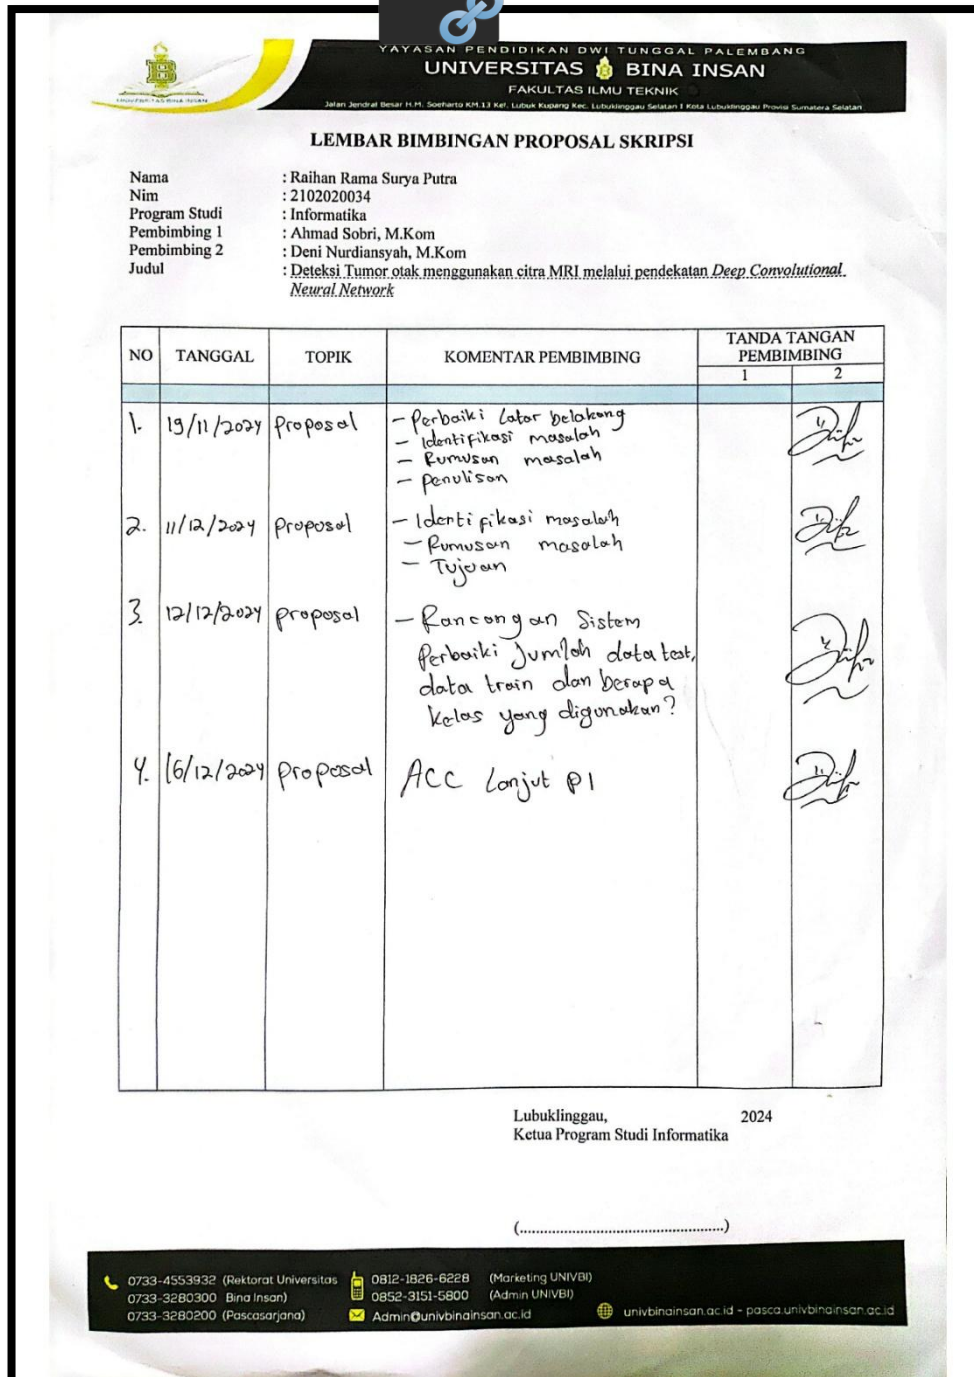 YAYASAN PENDIDIKAN DWI TUNGGAL PALEMBANG
UNIVERSITAS BINA INSAN
FAKULTAS ILMU TEKNIK
Jalan Jendral Besar H.M. Soeharto KM.13 Kel. Lubuk Kupang Kec. Lubuklinggau Selatan I Kota Lubuklinggau Provisi Sumatera Selatan
UNIVERSITAS BINA INSAN
LEMBAR BIMBINGAN PROPOSAL SKRIPSI
Nama : Raihan Rama Surya Putra
Nim : 2102020034
Program Studi : Informatika
Pembimbing 1 : Ahmad Sobri, M.Kom
Pembimbing 2 : Deni Nurdiansyah, M.Kom
Judul : Deteksi Tumor otak menggunakan citra MRI melalui pendekatan Deep Convolutional
Neural Network
NO TANGGAL TOPIK KOMENTAR PEMBIMBING TANDA TANGAN PEMBIMBING
1 2
1. 19/11/2024 Proposal - Perbaiki Latar belakang
- Identifikasi masalah
- Rumusan masalah
- Penulisan
2. 11/12/2024 Proposal - Identifikasi masalah
- Rumusan masalah
- Tujuan
3. 12/12/2024 proposal - Rancangan Sistem
Perbaiki Jumlah data test,
data train dan berapa
kelas yang digunakan?
4. 16/12/2024 proposal ACC Lanjut P1
Lubuklinggau, 2024
Ketua Program Studi Informatika
(..................................................)
0733-4553932 (Rektorat Universitas
0733-3280300 Bina Insan)
0733-3280200 (Pascasarjana)
0812-1826-6228 (Marketing UNIVBI)
0852-3151-5800 (Admin UNIVBI)
Admin@univbinainsan.ac.id
univbinainsan.ac.id - pasca.univbinainsan.ac.id